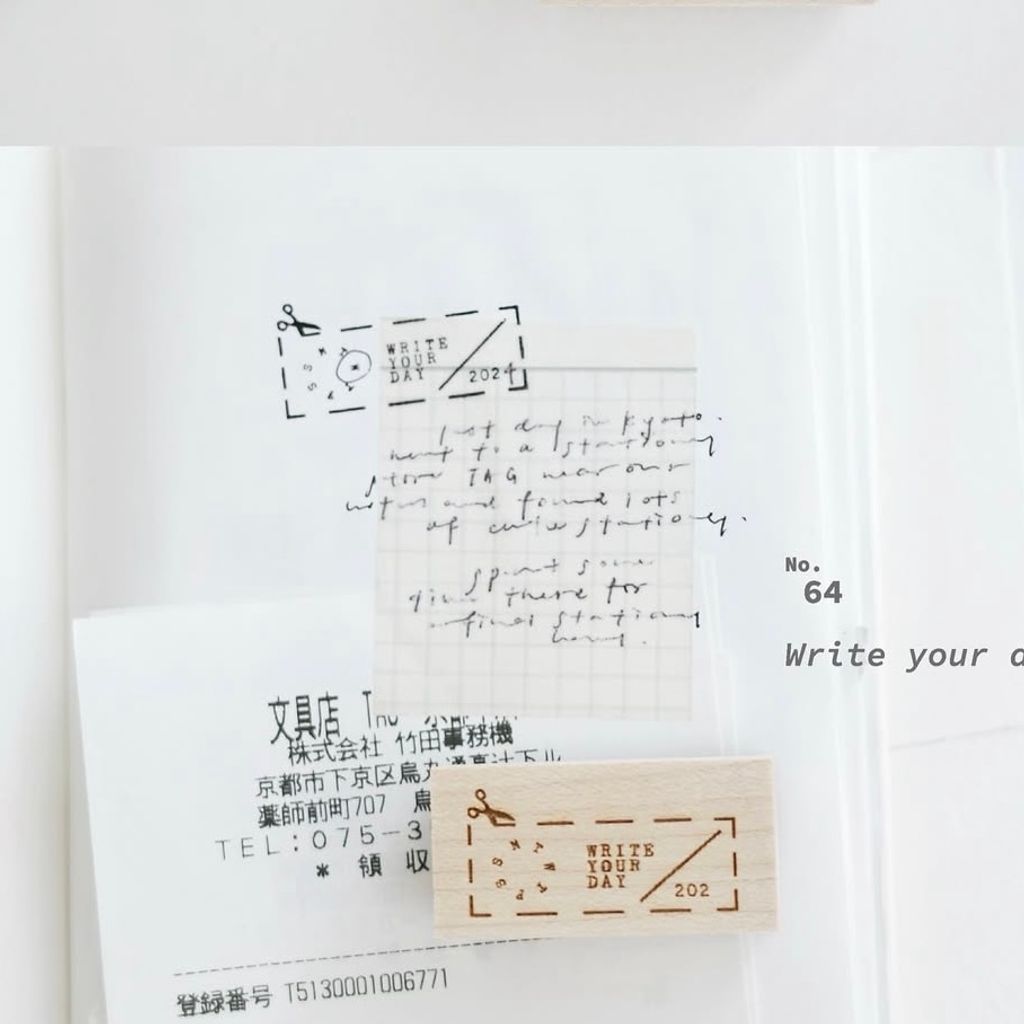 WRITE
YOUR
DAY
2024
last day in kyoto.
went to a stationery
store TAG near our
and found lots
of stationery.
spent some
time there for
stationery
No.
64
Write your d
文具店 TAG 京都
株式会社 竹田事務機
京都市下京区烏丸通高辻下ル
薬師前町707 烏
TEL:075-3
* 領 収
S M T W T F S
WRITE
YOUR
DAY
202
登録番号 T5130001006771